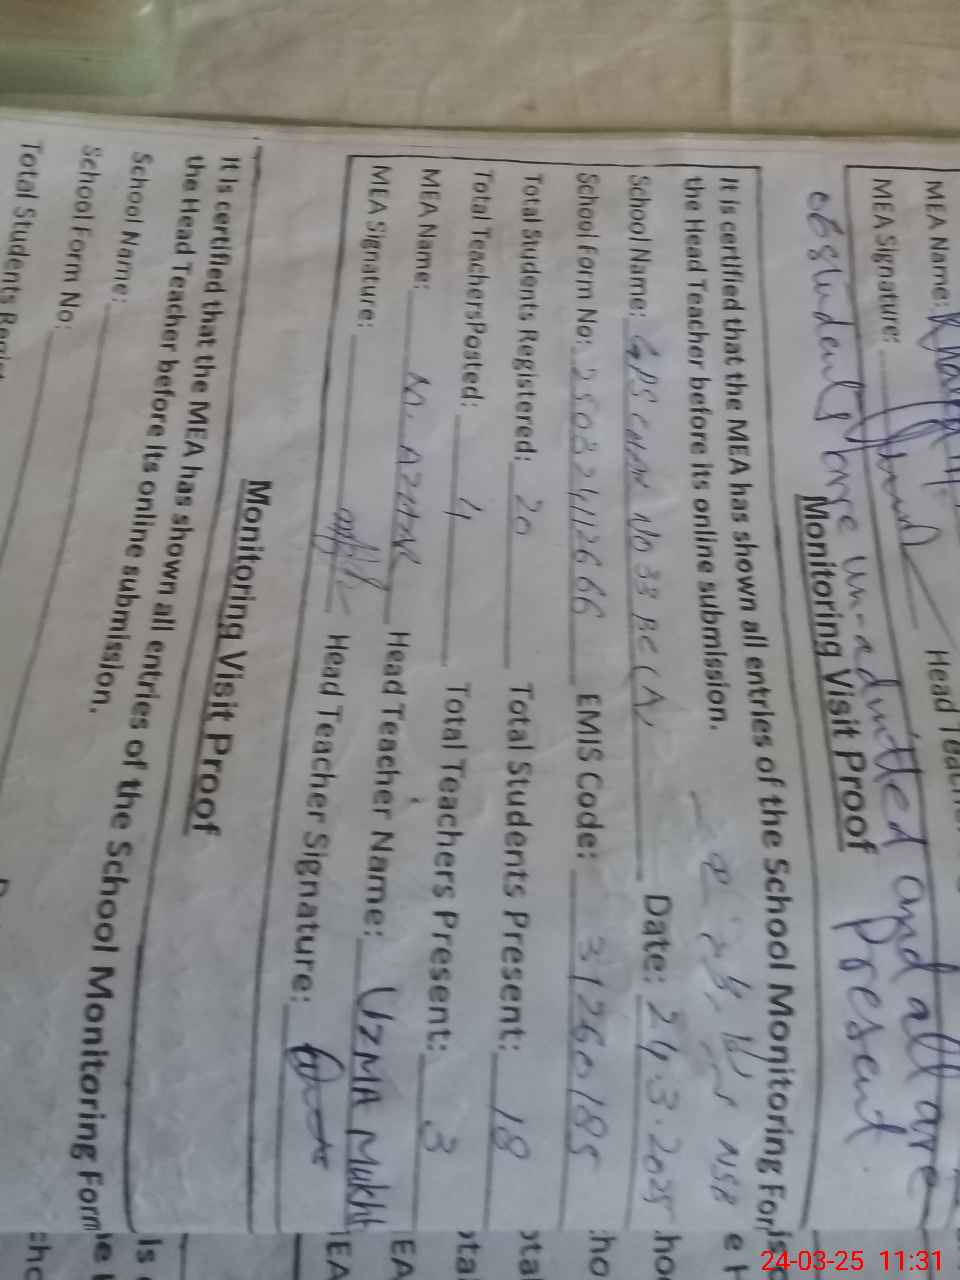 MEA Name:
Head Teacher
MEA Signature:
06 students are un-admitted and all are
present
Monitoring Visit Proof
It is certified that the MEA has shown all entries of the School Monitoring For
the Head Teacher before its online submission.
School Name: GPS CHAK No 33 BC (A) Date: 24.3.2025
School Form No: 250324112666 EMIS Code: 31260185
Total Students Registered: 20 Total Students Present: 18
Total TeachersPosted: 4 Total Teachers Present: 3
MEA Name: M. AZHAR Head Teacher Name: UZMA Mukht
MEA Signature: Head Teacher Signature:
Monitoring Visit Proof
It is certified that the MEA has shown all entries of the School Monitoring Form
the Head Teacher before its online submission.
School Name:
School Form No:
Total Students Regist
24-03-25 11:31